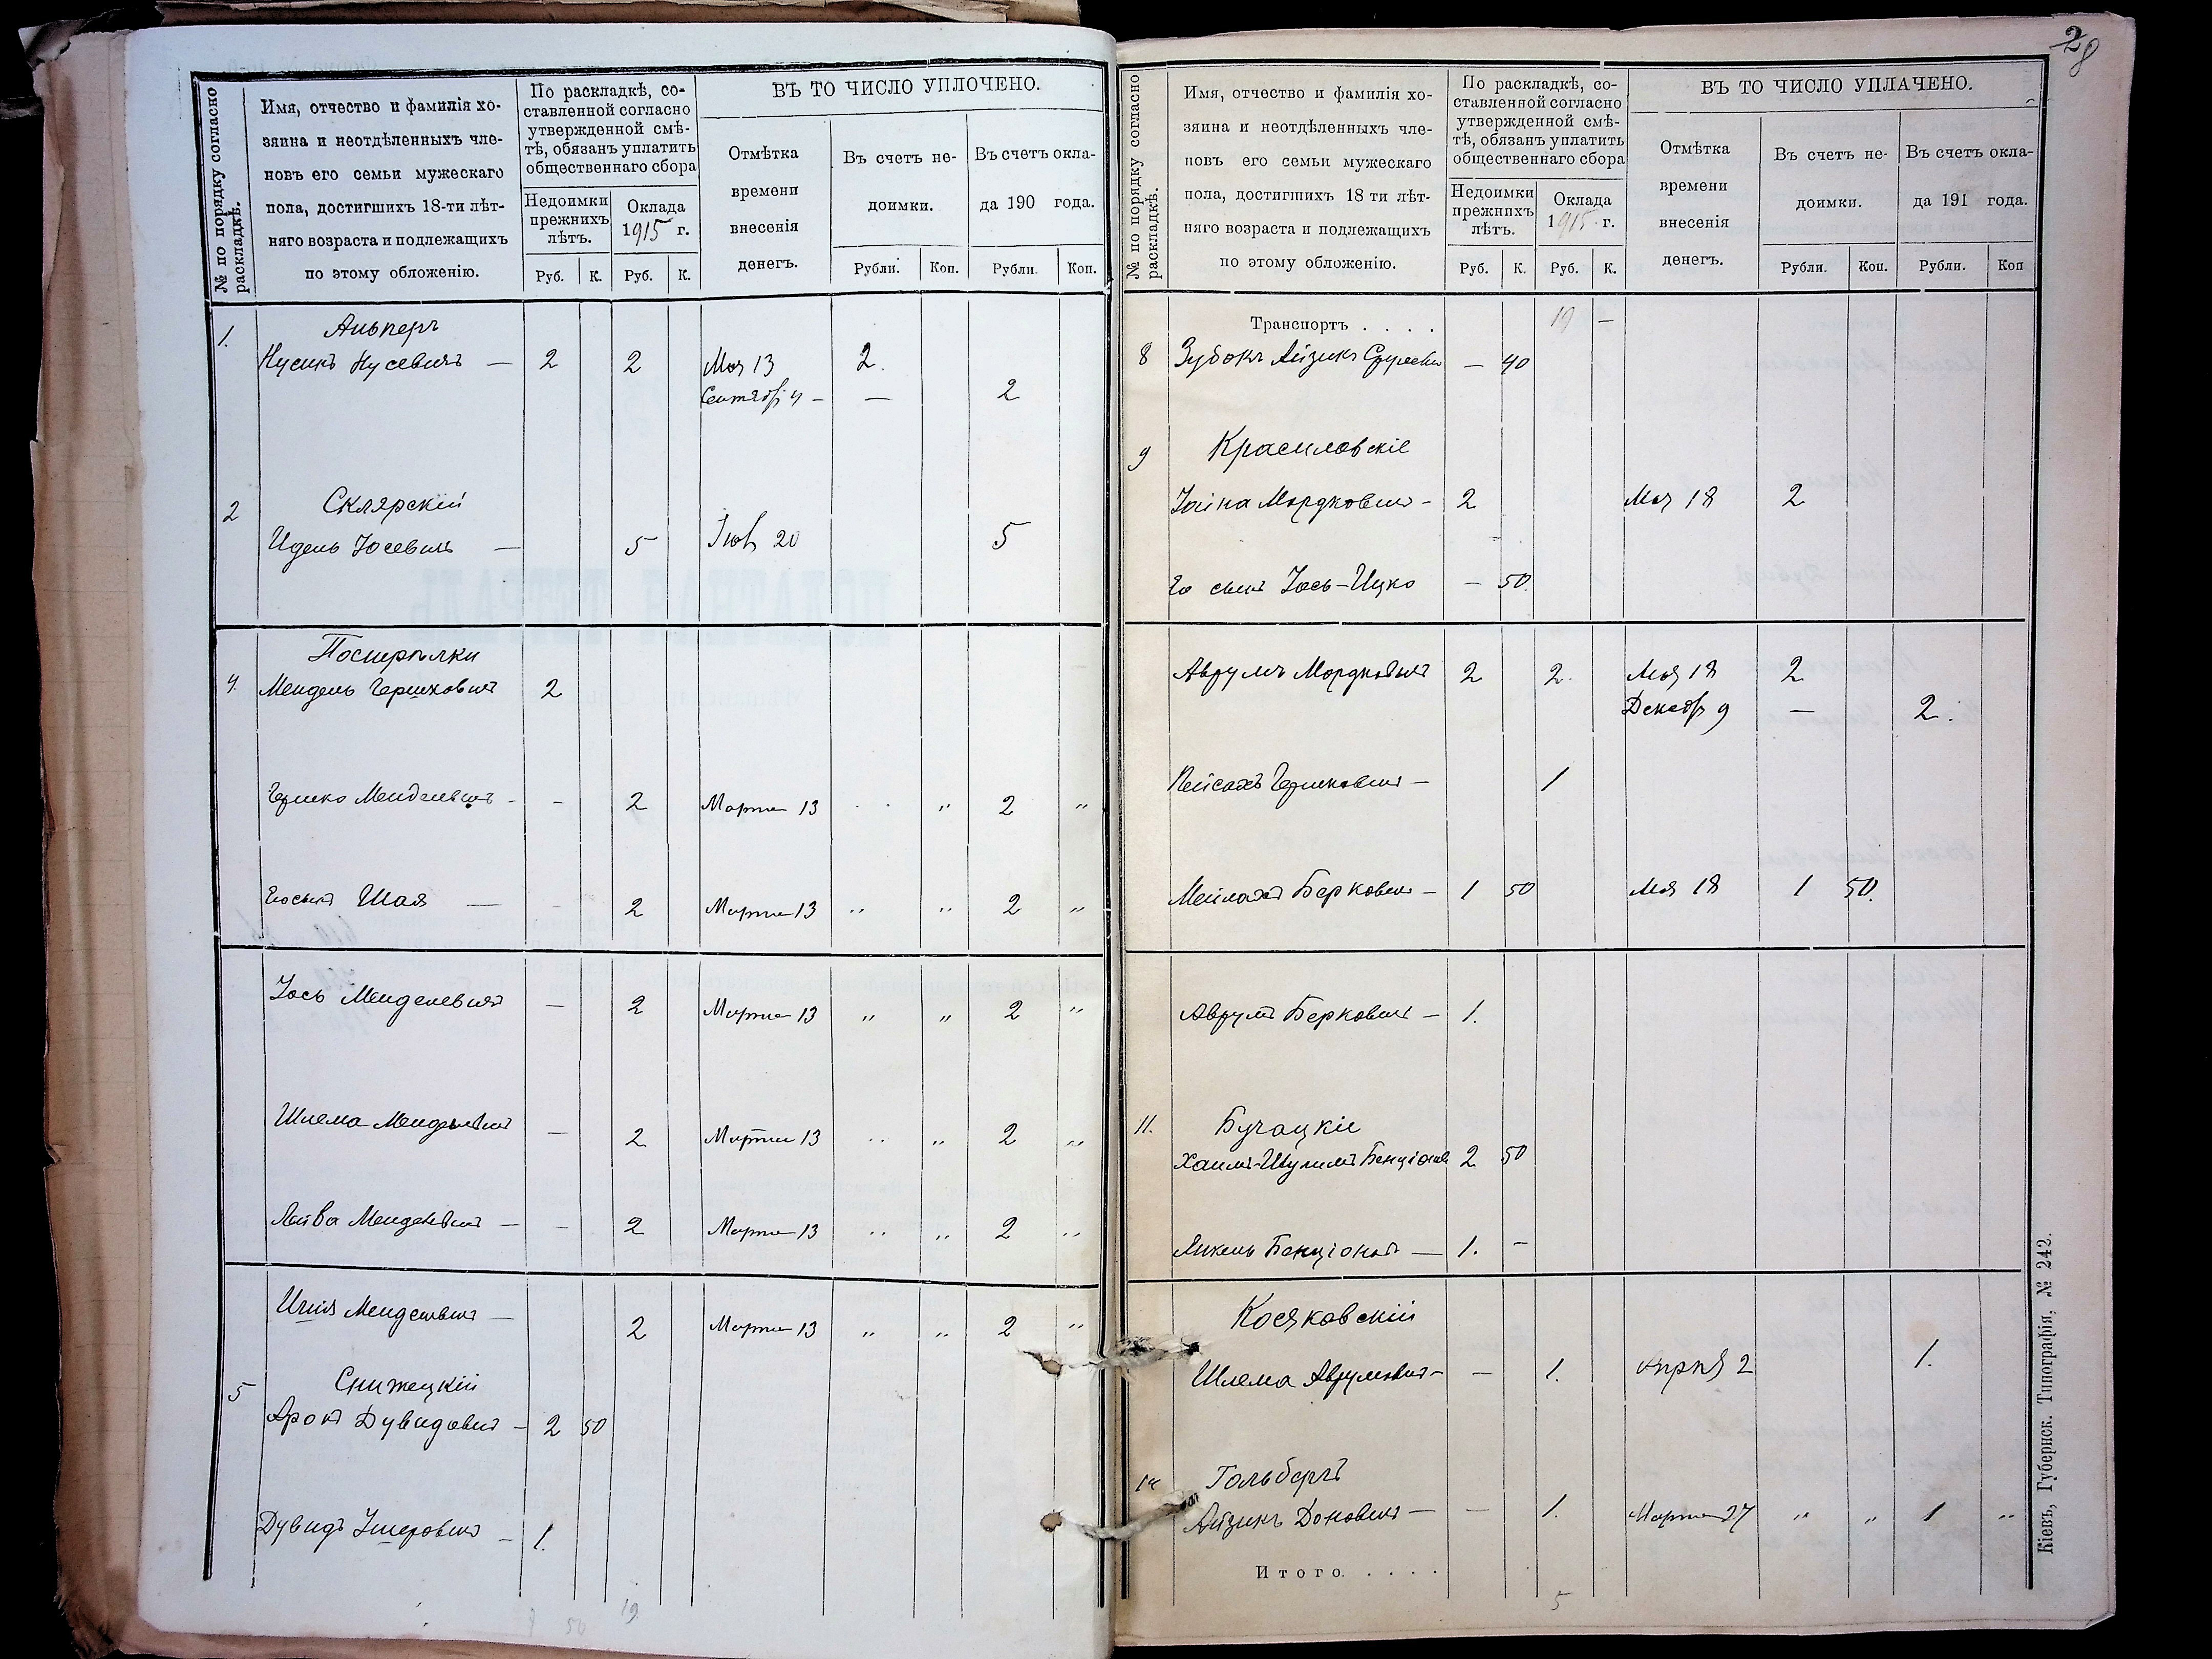 28
№ по порядку согласно раскладкѣ.
Имя, отчество и фамилія хо-
зяина и неотдѣленныхъ чле-
новъ его семьи мужескаго
пола, достигшихъ 18-ти лѣт-
няго возраста и подлежащихъ
по этому обложенію.
По раскладкѣ, со-
ставленной согласно
утвержденной смѣ-
тѣ, обязанъ уплатить
общественнаго сбора
Недоимки
прежнихъ
лѣтъ.
Оклада
1915 г.
Руб. К. Руб. К.
ВЪ ТО ЧИСЛО УПЛОЧЕНО.
Отмѣтка
времени
внесенія
денегъ.
Въ счетъ не-
доимки.
Въ счетъ окла-
да 190 года.
Рубли. Коп. Рубли. Коп.
1.
Нусинъ Нусевичъ — 2 2 Мая 13 2.
Сентябр 4 — — 2
2 Склярскій
Идель Іосевичъ — 5 20 5
4.
Мендель Гершковичъ 2
Гершко Менделевичъ - - 2 Марта 13 „ 2 „
Шая — 2 Марта 13 „ „ 2 „
Іось Менделевичъ — 2 Марта 13 „ „ 2 „
Шлема Менделевичъ — 2 Марта 13 „ „ 2 „
Лейва Менделевичъ — - 2 Марта 13 „ „ 2 „
Менделевичъ — 2 Марта 13 „ „ 2 „
5 Снижецкій
Аронъ Дувидовичъ — 2 50
Дувидъ Ушеровичъ — 1.
50 19
№ по порядку согласно раскладкѣ.
Имя, отчество и фамилія хо-
зяина и неотдѣленныхъ чле-
новъ его семьи мужескаго
пола, достигшихъ 18 ти лѣт-
няго возраста и подлежащихъ
по этому обложенію.
По раскладкѣ, со-
ставленной согласно
утвержденной смѣ-
тѣ, обязанъ уплатить
общественнаго сбора
Недоимки
прежнихъ
лѣтъ.
Оклада
1915 г.
Руб. К. Руб. К.
ВЪ ТО ЧИСЛО УПЛАЧЕНО.
Отмѣтка
времени
внесенія
денегъ.
Въ счетъ не-
доимки.
Въ счетъ окла-
да 191 года.
Рубли. Коп. Рубли. Коп
Транспортъ . . . . 19 —
8 Зубокъ Айзикъ — 40
9 Красиловскіе
Мордковичъ - 2 Мая 18 2
Его сынъ Іось-Ицко — 50.
Аврумъ Мордковичъ 2 2. Мая 18 2
Декабр 9 — 2.
Пейсахъ Гершковичъ — 1
Мейлахъ Берковичъ — 1 50 Мая 18 1 50.
Аврумъ Берковичъ — 1.
11. Бучацкіе
Хаимъ-Шулимъ 2 50
Янкель — 1. -
Косяковскій
Шлема Аврумовичъ — — 1. Апрѣля 2 1.
14 Гольбергъ
Айзикъ — — 1. Марта 27 „ „ 1 „
Итого. . . . .
5
Кіевъ, Губернск. Типографія, № 242.